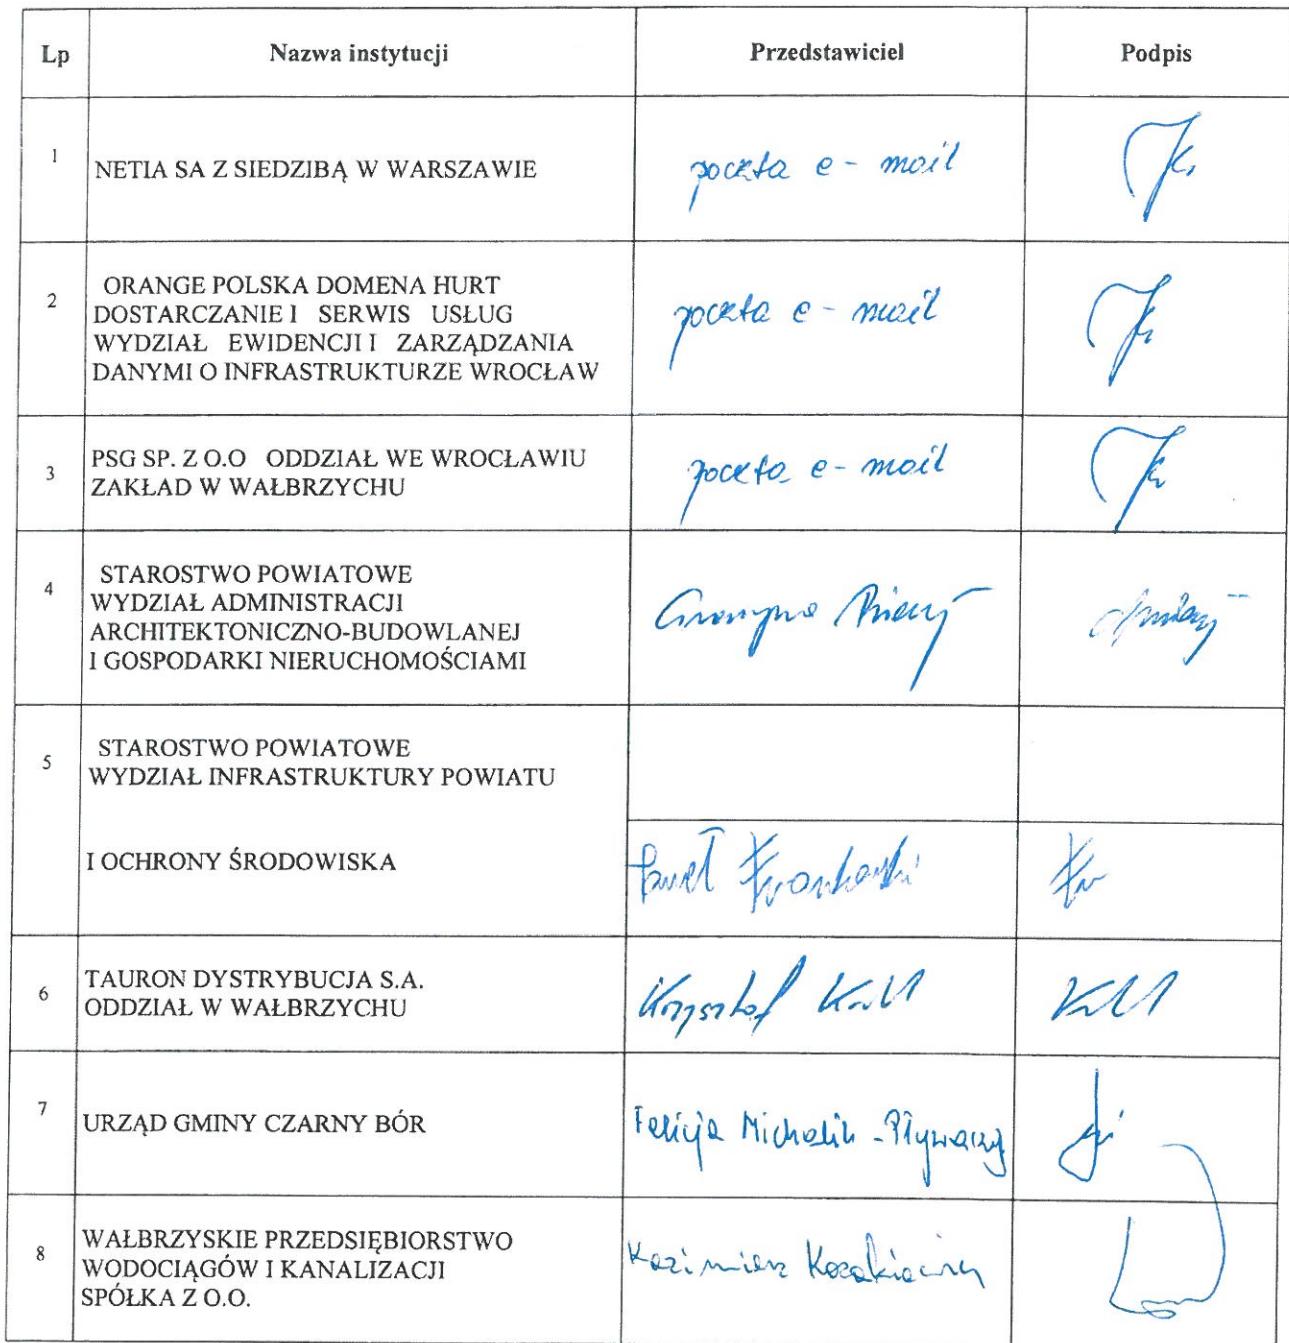 Lp Nazwa instytucji Przedstawiciel Podpis
1 NETIA SA Z SIEDZIBĄ W WARSZAWIE poczta e-mail
2 ORANGE POLSKA DOMENA HURT
DOSTARCZANIE I SERWIS USŁUG
WYDZIAŁ EWIDENCJI I ZARZĄDZANIA
DANYMI O INFRASTRUKTURZE WROCŁAW
poczta e-mail
3 PSG SP. Z O.O ODDZIAŁ WE WROCŁAWIU
ZAKŁAD W WAŁBRZYCHU
poczta e-mail
4 STAROSTWO POWIATOWE
WYDZIAŁ ADMINISTRACJI
ARCHITEKTONICZNO-BUDOWLANEJ
I GOSPODARKI NIERUCHOMOŚCIAMI
5 STAROSTWO POWIATOWE
WYDZIAŁ INFRASTRUKTURY POWIATU
I OCHRONY ŚRODOWISKA
Paweł
6 TAURON DYSTRYBUCJA S.A.
ODDZIAŁ W WAŁBRZYCHU
Krzysztof
7 URZĄD GMINY CZARNY BÓR
Felicja Michalik-Pływaczyk
8 WAŁBRZYSKIE PRZEDSIĘBIORSTWO
WODOCIĄGÓW I KANALIZACJI
SPÓŁKA Z O.O.
Kazimierz Kozakiewicz